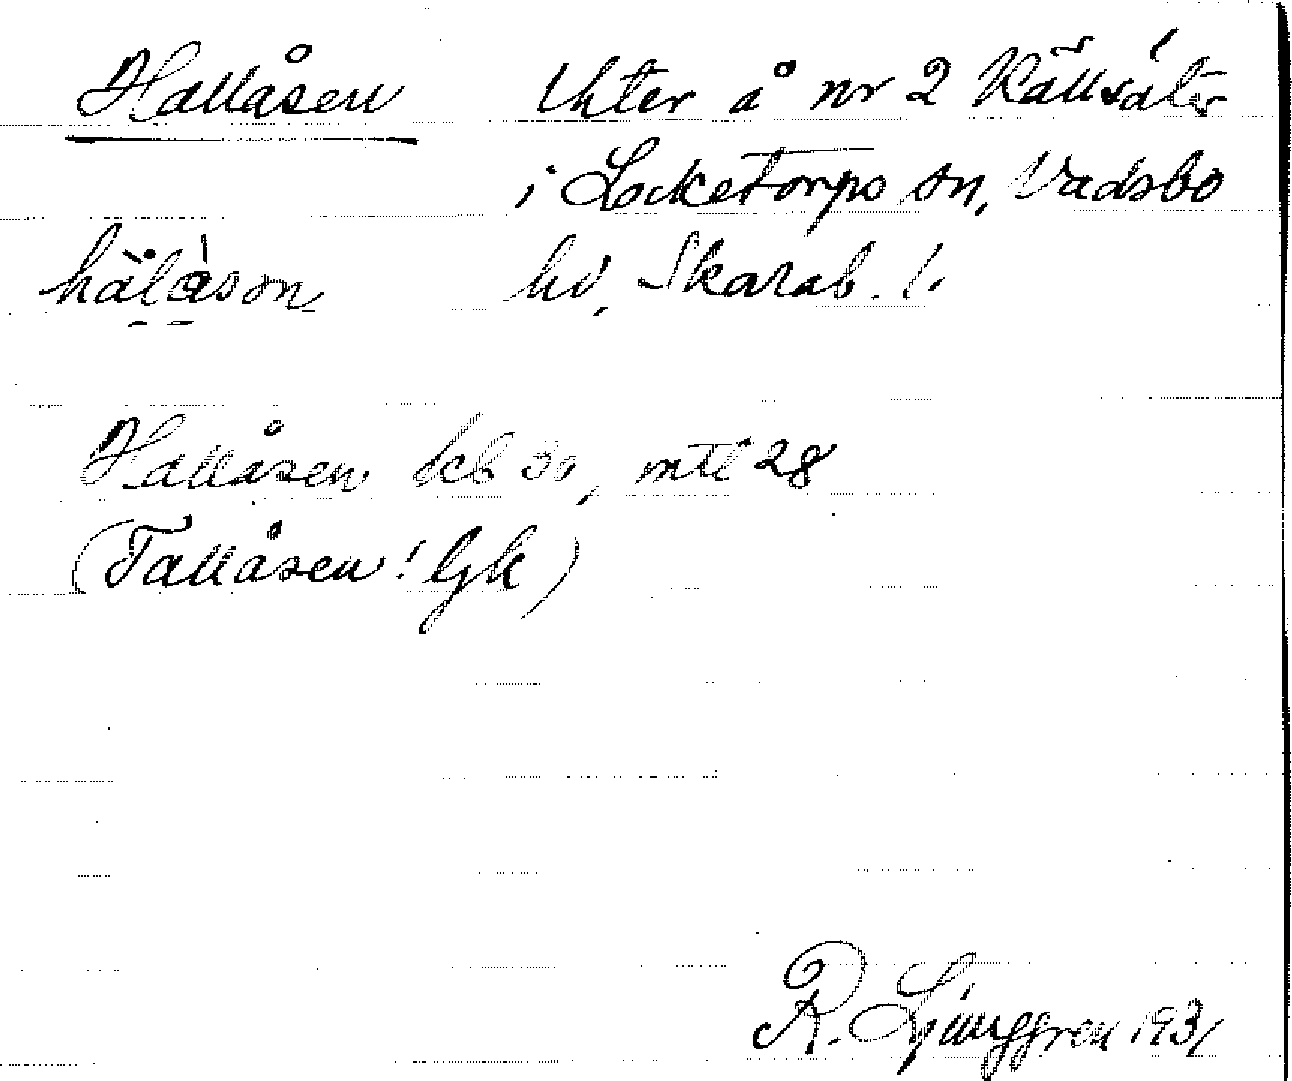 Hallåsen Uhter å nr 2 Källsäter
i Locketorps sn, Vadsbo
hälåson hd, Skarab. l.
Hallåsen kb 30, mtl 28
(Tallåsen! Gk)
R. Ljunggren 1931